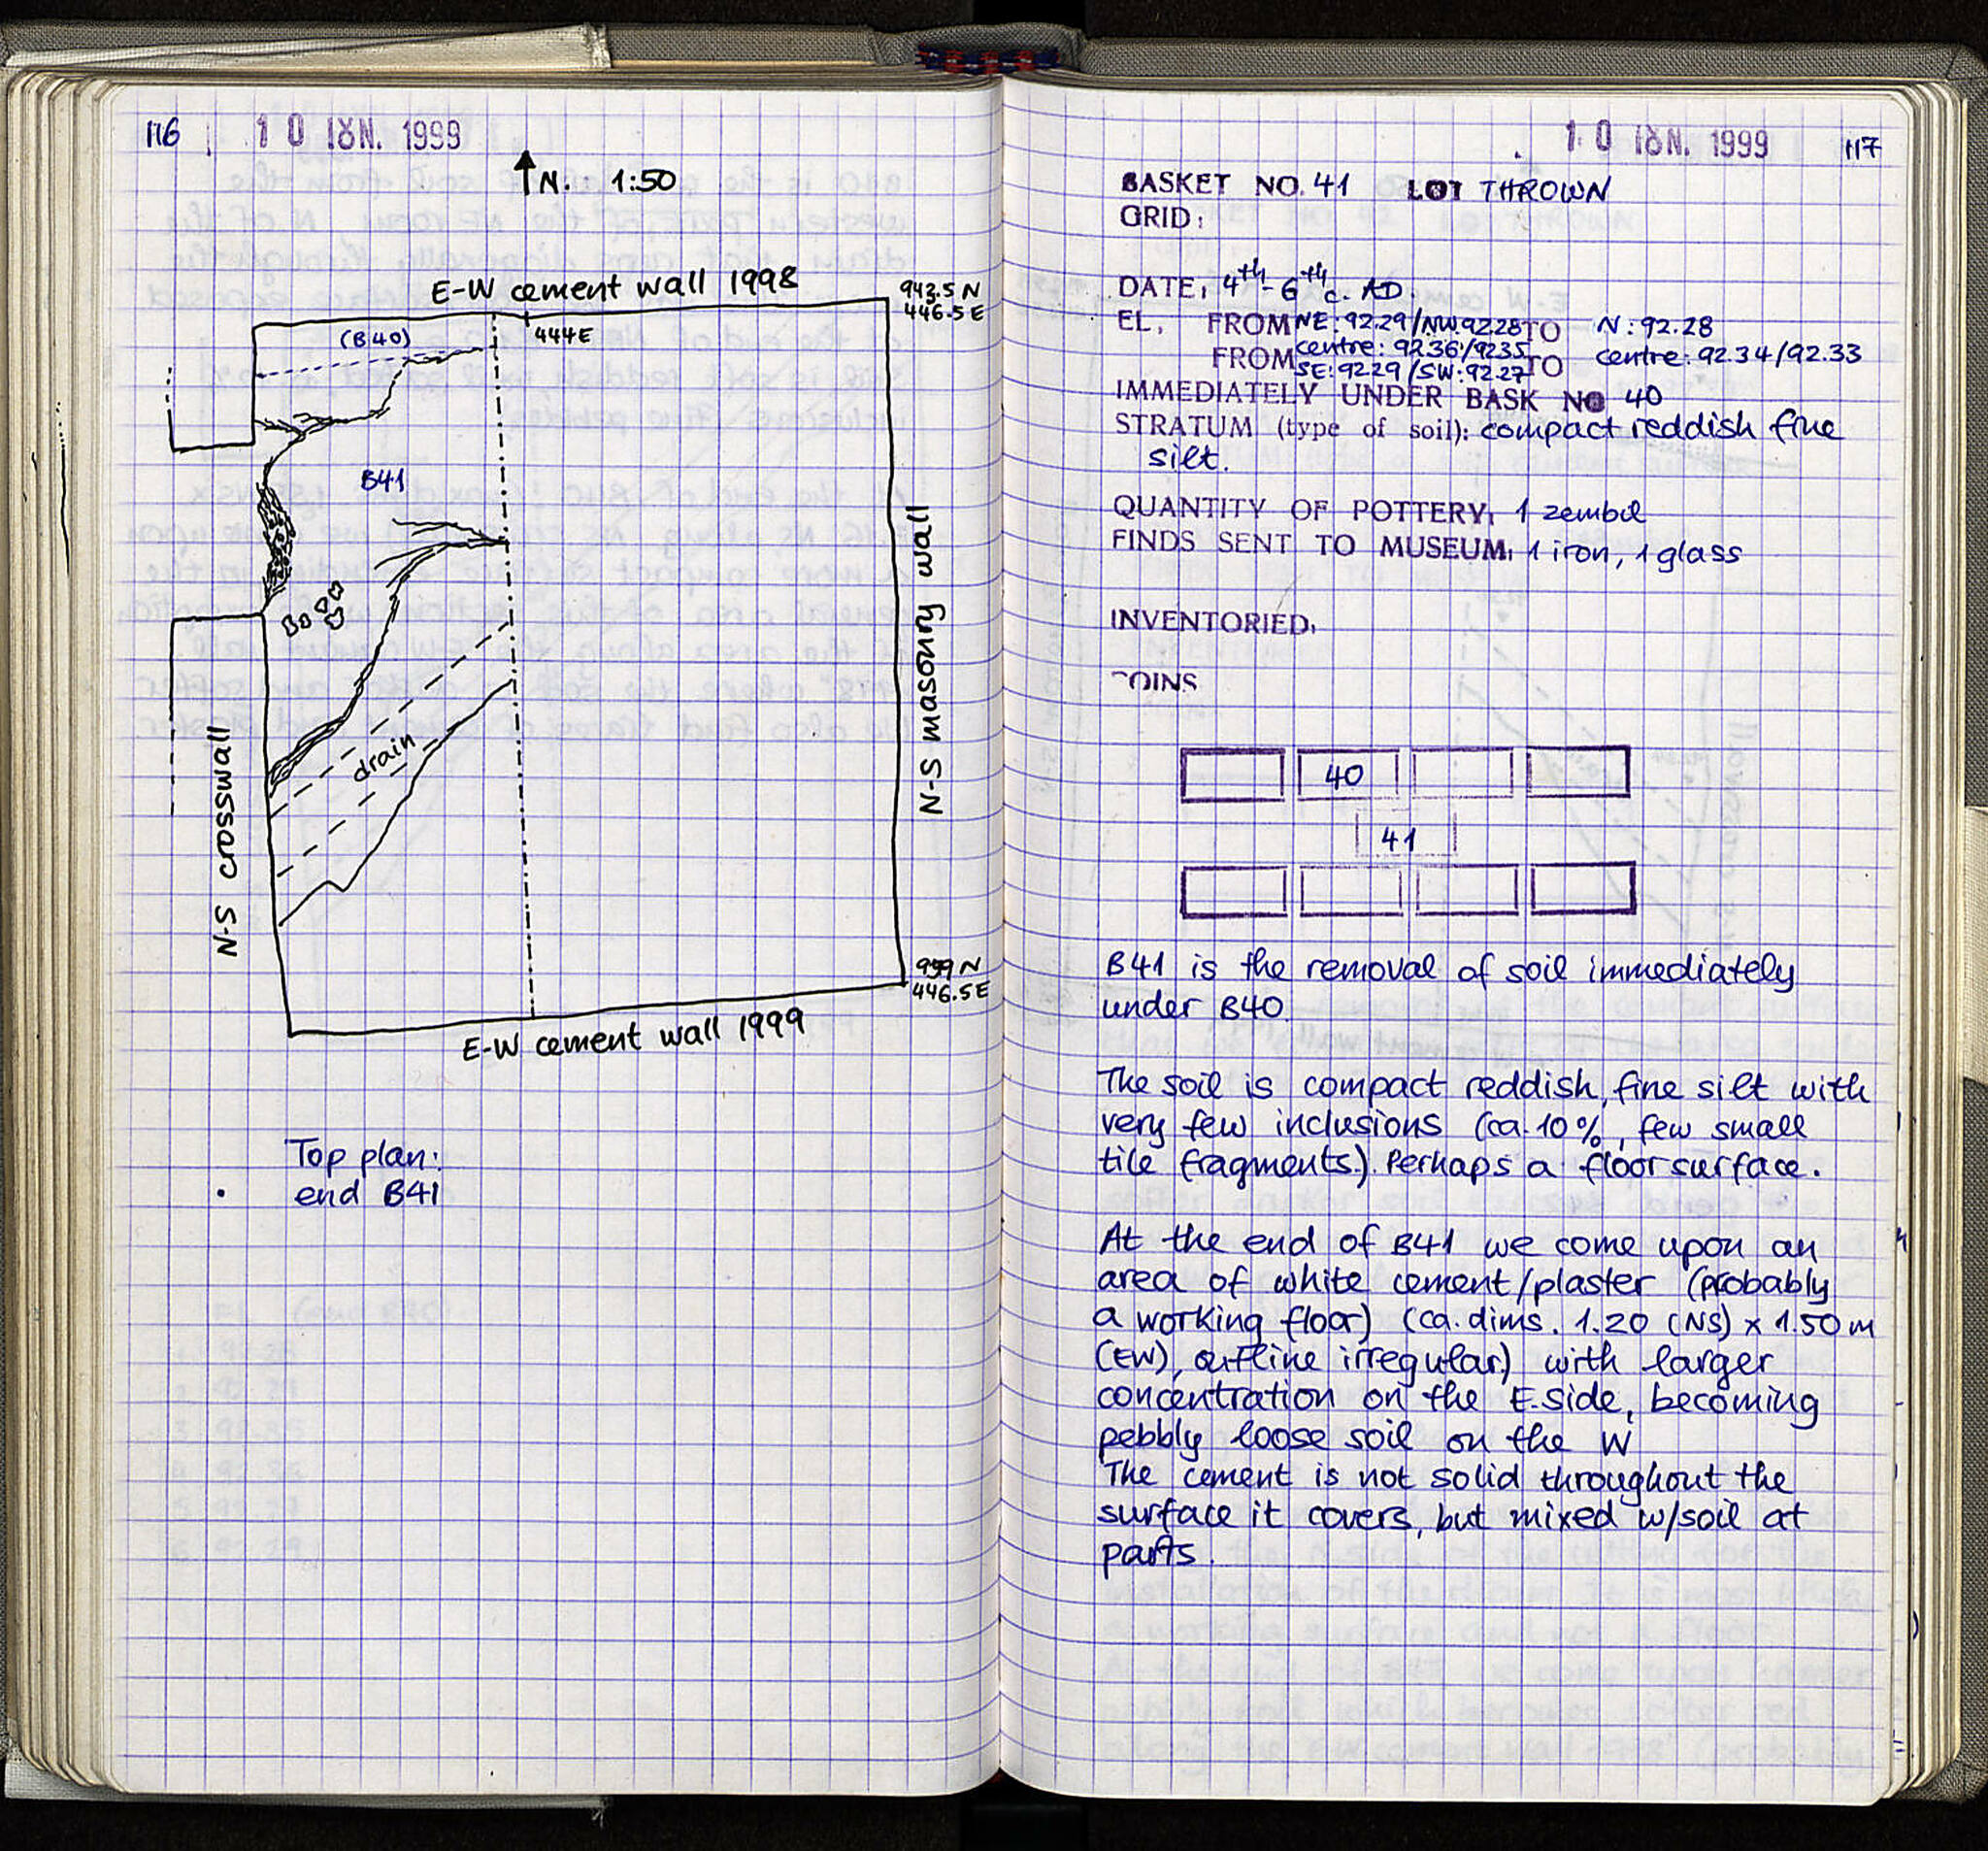 116
10 ΙΟΥΝ. 1999
N. 1:50
E-W cement wall 1998
943.5 N
446.5 E
444E
(B40)
B41
N-S masonry wall
drain
N-S crosswall
939 N
446.5 E
E-W cement wall 1999
Top plan:
end B41
10 ΙΟΥΝ. 1999
117
BASKET NO. 41 LOT THROWN
GRID:
DATE: 4th - 6th c. AD
EL. FROM NE: 92.29/NW 92.28 TO N: 92.28
FROM centre: 92.36/92.35 TO centre: 92.34/92.33
SE: 92.29 / SW: 92.27
IMMEDIATELY UNDER BASK NO 40
STRATUM (type of soil): compact reddish fine
silt.
QUANTITY OF POTTERY: 1 zembil
FINDS SENT TO MUSEUM: 1 iron, 1 glass
INVENTORIED:
COINS
40
41
B41 is the removal of soil immediately
under B40
The soil is compact reddish, fine silt with
very few inclusions (ca. 10%, few small
tile fragments). Perhaps a floor surface.
At the end of B41 we come upon an
area of white cement/plaster (probably
a working floor) (ca. dims. 1.20 (NS) x 1.50 m
(EW), outline irregular) with larger
concentration on the E. side, becoming
pebbly loose soil on the W
The cement is not solid throughout the
surface it covers, but mixed w/soil at
parts.